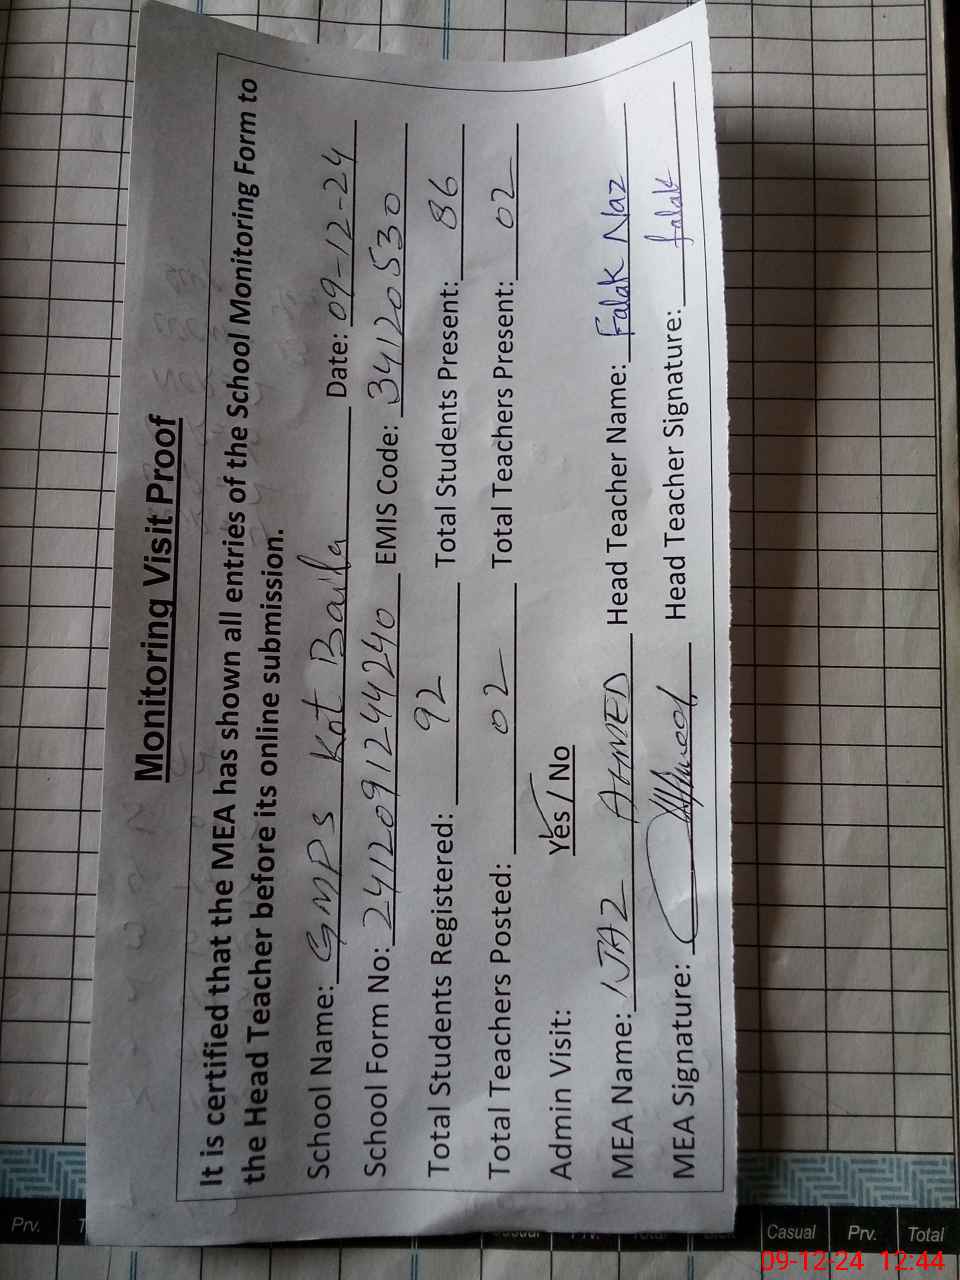 Monitoring Visit Proof
It is certified that the MEA has shown all entries of the School Monitoring Form to
the Head Teacher before its online submission.
School Name: GMPS Kot Baila Date: 09-12-24
School Form No: 2412091244240 EMIS Code: 34120530
Total Students Registered: 92 Total Students Present: 86
Total Teachers Posted: 02 Total Teachers Present: 02
Admin Visit: Yes / No
MEA Name: IJAZ AHMED Head Teacher Name: Falak Naz
MEA Signature: Head Teacher Signature: falak
Prv.
Casual Prv. Total
09-12-24 12:44